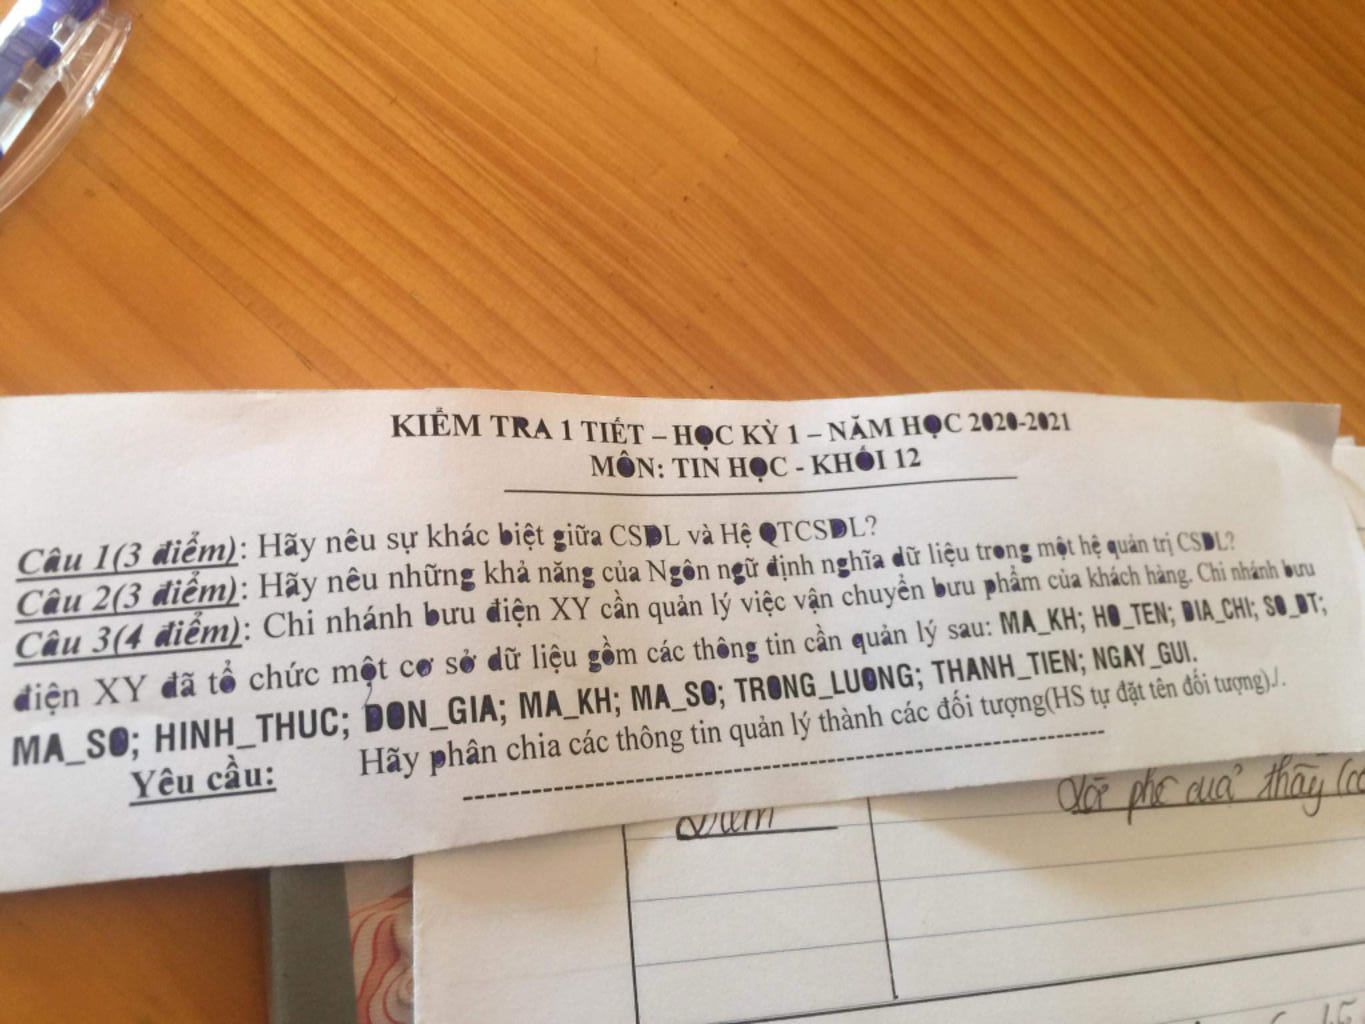 KIỂM TRA 1 TIẾT – HỌC KỲ 1 – NĂM HỌC 2020-2021
MÔN: TIN HỌC - KHỐI 12
Câu 1(3 điểm): Hãy nêu sự khác biệt giữa CSDL và Hệ QTCSDL?
Câu 2(3 điểm): Hãy nêu những khả năng của Ngôn ngữ định nghĩa dữ liệu trong một hệ quản trị CSDL?
Câu 3(4 điểm): Chi nhánh bưu điện XY cần quản lý việc vận chuyển bưu phẩm của khách hàng. Chi nhánh bưu
điện XY đã tổ chức một cơ sở dữ liệu gồm các thông tin cần quản lý sau: MA_KH; HO_TEN; DIA_CHI; SO_DT;
MA_SO; HINH_THUC; DON_GIA; MA_KH; MA_SO; TRONG_LUONG; THANH_TIEN; NGAY_GUI.
Yêu cầu: Hãy phân chia các thông tin quản lý thành các đối tượng(HS tự đặt tên đối tượng)./.
Điểm
Lời phê của thầy (cô